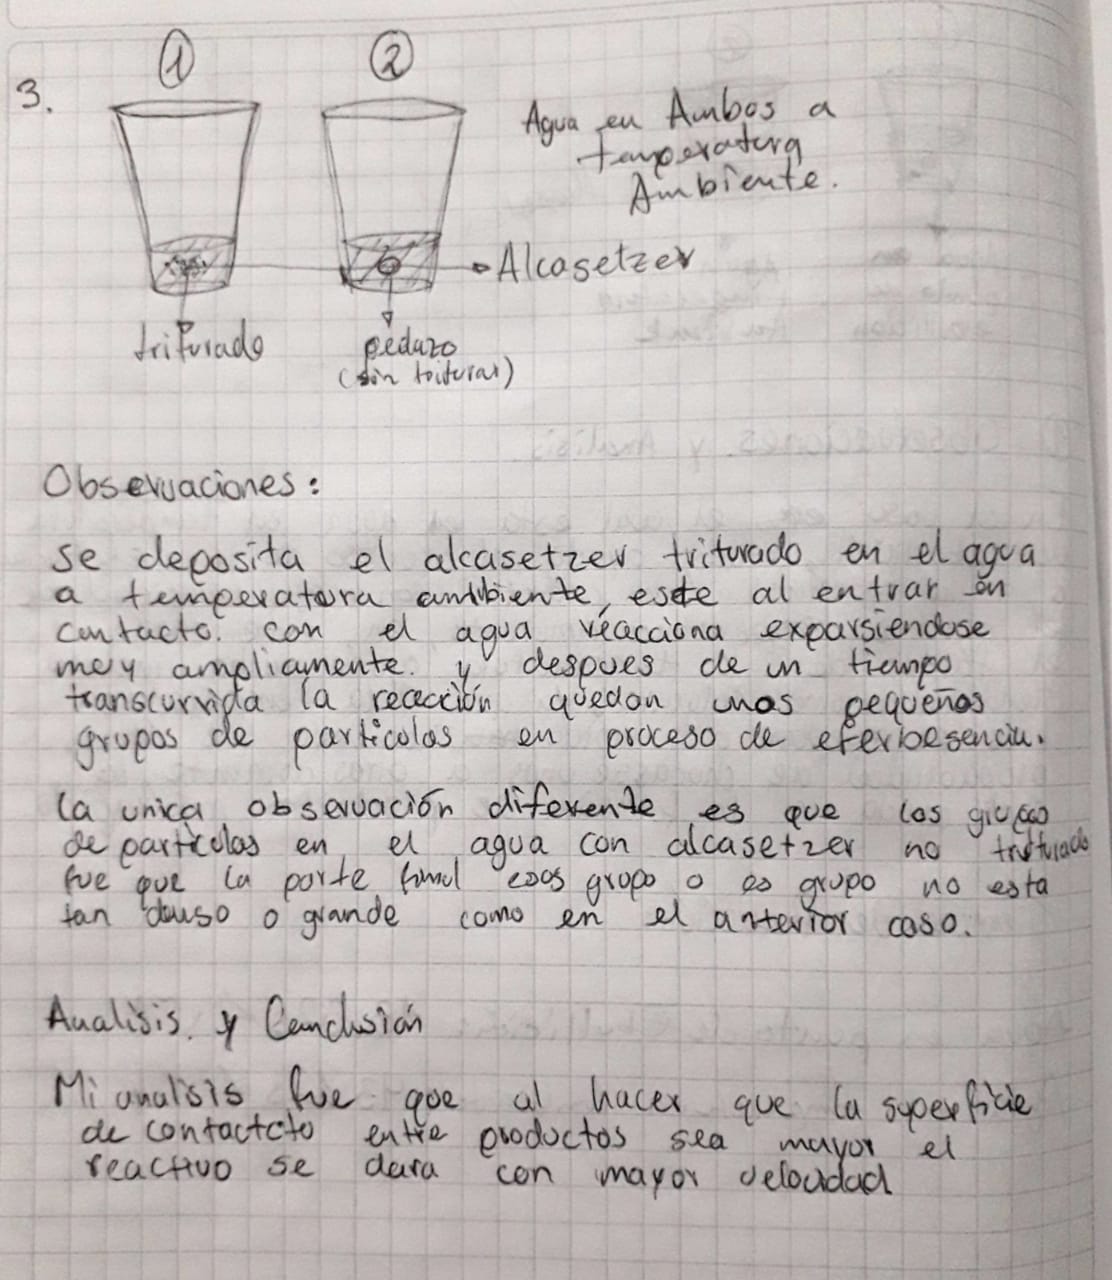 3.
① ②
Agua en Ambos a
temperatura
Ambiente.
Alcasetzer
triturado
pedazo
(sin triturar)
Observaciones:
se deposita el alcasetzer triturado en el agua
a temperatura ambiente, este al entrar en
contacto con el agua reacciona exparsiendose
muy ampliamente. y despues de un tiempo
transcurrida la reacción quedan unos pequeños
grupos de particulas en proceso de eferbesencia.
la unica observación diferente es que los grupos
de particulas en el agua con alcasetzer no triturado
fue que la parte final esos grupo o es grupo no esta
tan denso o grande como en el anterior caso.
Analisis y Conclusión
Mi analisis fue que al hacer que la superficie
de contactcto entre productos sea mayor el
reactivo se dara con mayor velocidad